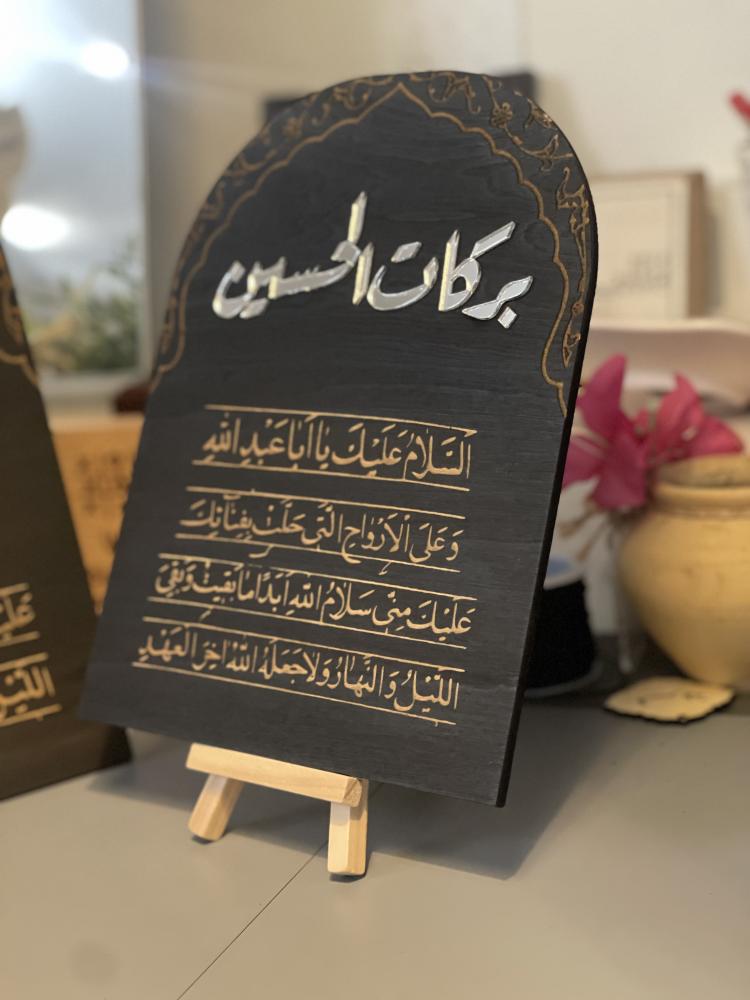 بركات الحسين
السَّلَامُ عَلَيْكَ يَا اَبَا عَبْدِ اللهِ
وَعَلَى الْاَرْوَاحِ الَّتِي حَلَّتْ بِفِنَآئِكَ
عَلَيْكَ مِنِّي سَلَامُ اللهِ اَبَدًا مَا بَقِيتُ وَبَقِيَ
اللَّيْلُ وَالنَّهَارُ وَلَا جَعَلَهُ اللهُ اخِرَ الْعَهْدِ